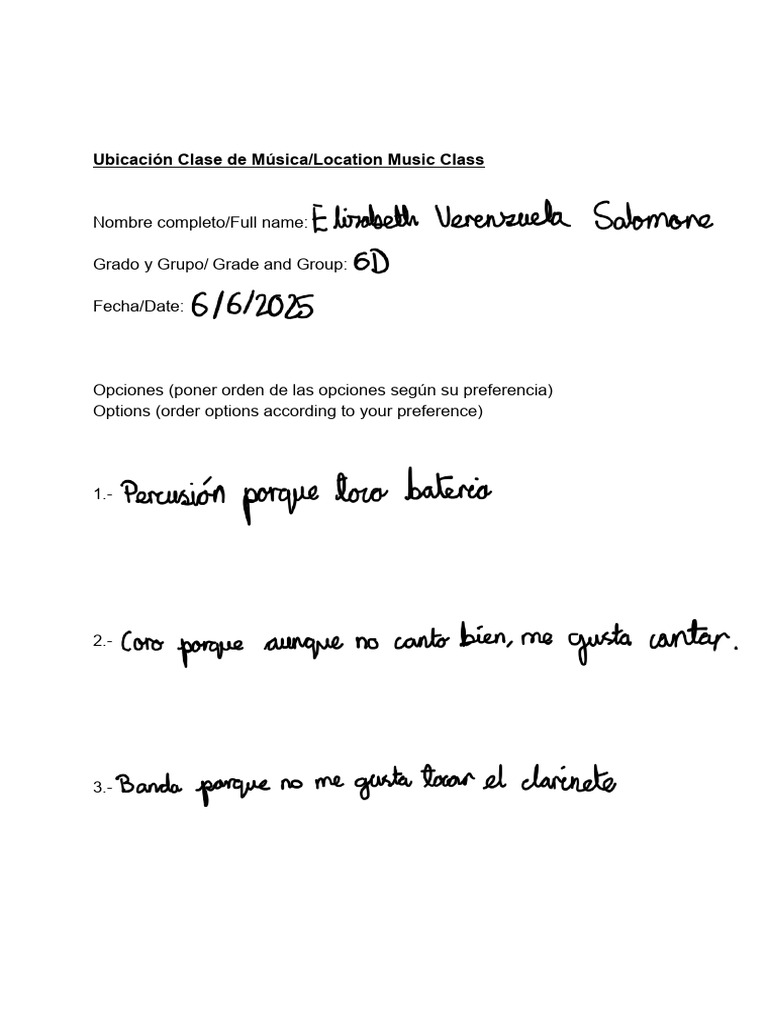 Ubicación Clase de Música/Location Music Class
Nombre completo/Full name: Elizabeth Verenzuela Salomone
Grado y Grupo/ Grade and Group: 6D
Fecha/Date: 6/6/2025
Opciones (poner orden de las opciones según su preferencia)
Options (order options according to your preference)
1.- Percusión porque toco bateria
2.- Coro porque aunque no canto bien, me gusta cantar.
3.- Banda porque no me gusta tocar el clarinete